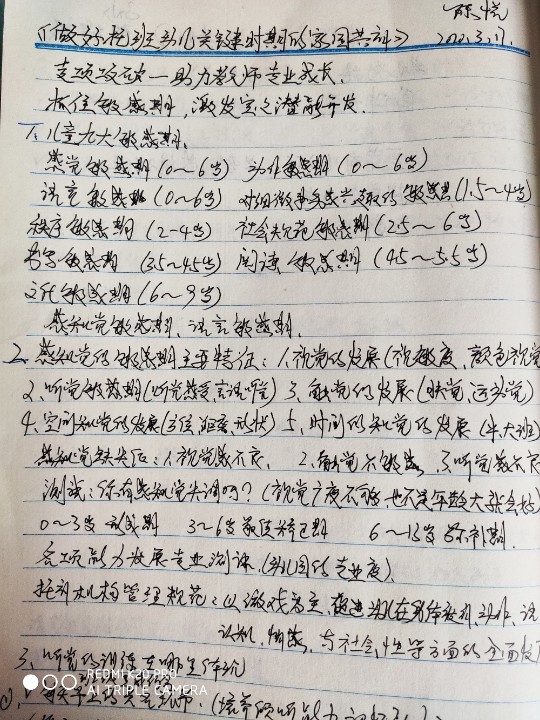 陈悦
《做好托班幼儿关键时期的家园共育》 2020.3.11.
专项攻破—助力教师专业成长.
抓住敏感期,激发宝宝潜能开发.
1、儿童九大敏感期:
感觉敏感期(0~6岁) 动作敏感期(0~6岁)
语言敏感期(0~6岁) 对细微事物感兴趣的敏感期(1.5~4岁)
秩序敏感期(2-4岁) 社会规范敏感期(2.5~6岁)
书写敏感期(3.5~4.5岁) 阅读敏感期(4.5~5.5岁)
文化敏感期(6~9岁)
感知觉敏感期、语言敏感期.
2、感知觉的敏感期主要特征:1、视觉的发展(视敏度、颜色视觉
2、听觉敏感期(听觉感受言语听觉) 3、触觉的发展(肤觉、运动觉)
4、空间知觉的发展(方位、距离、形状) 5、时间的知觉的发展(中大班)
感知觉缺失症:1、视觉感不良、 2、触觉不敏感 3、听觉感不良
测试:你有感知觉失调吗?(视觉广度不够,也不是年龄大就会好)
0~3岁 形成期 3~6岁最佳矫正期 6~13岁弥补期.
各项能力发展专业测评.(幼儿园的专业度).
托育机构管理规范:以游戏为主,促进幼儿在身体发育、动作、语
认知、情感、与社会性等方面的全面发
3、听觉的训练在哪里体现
REDMI K20 PRO
AI TRIPLE CAMERA